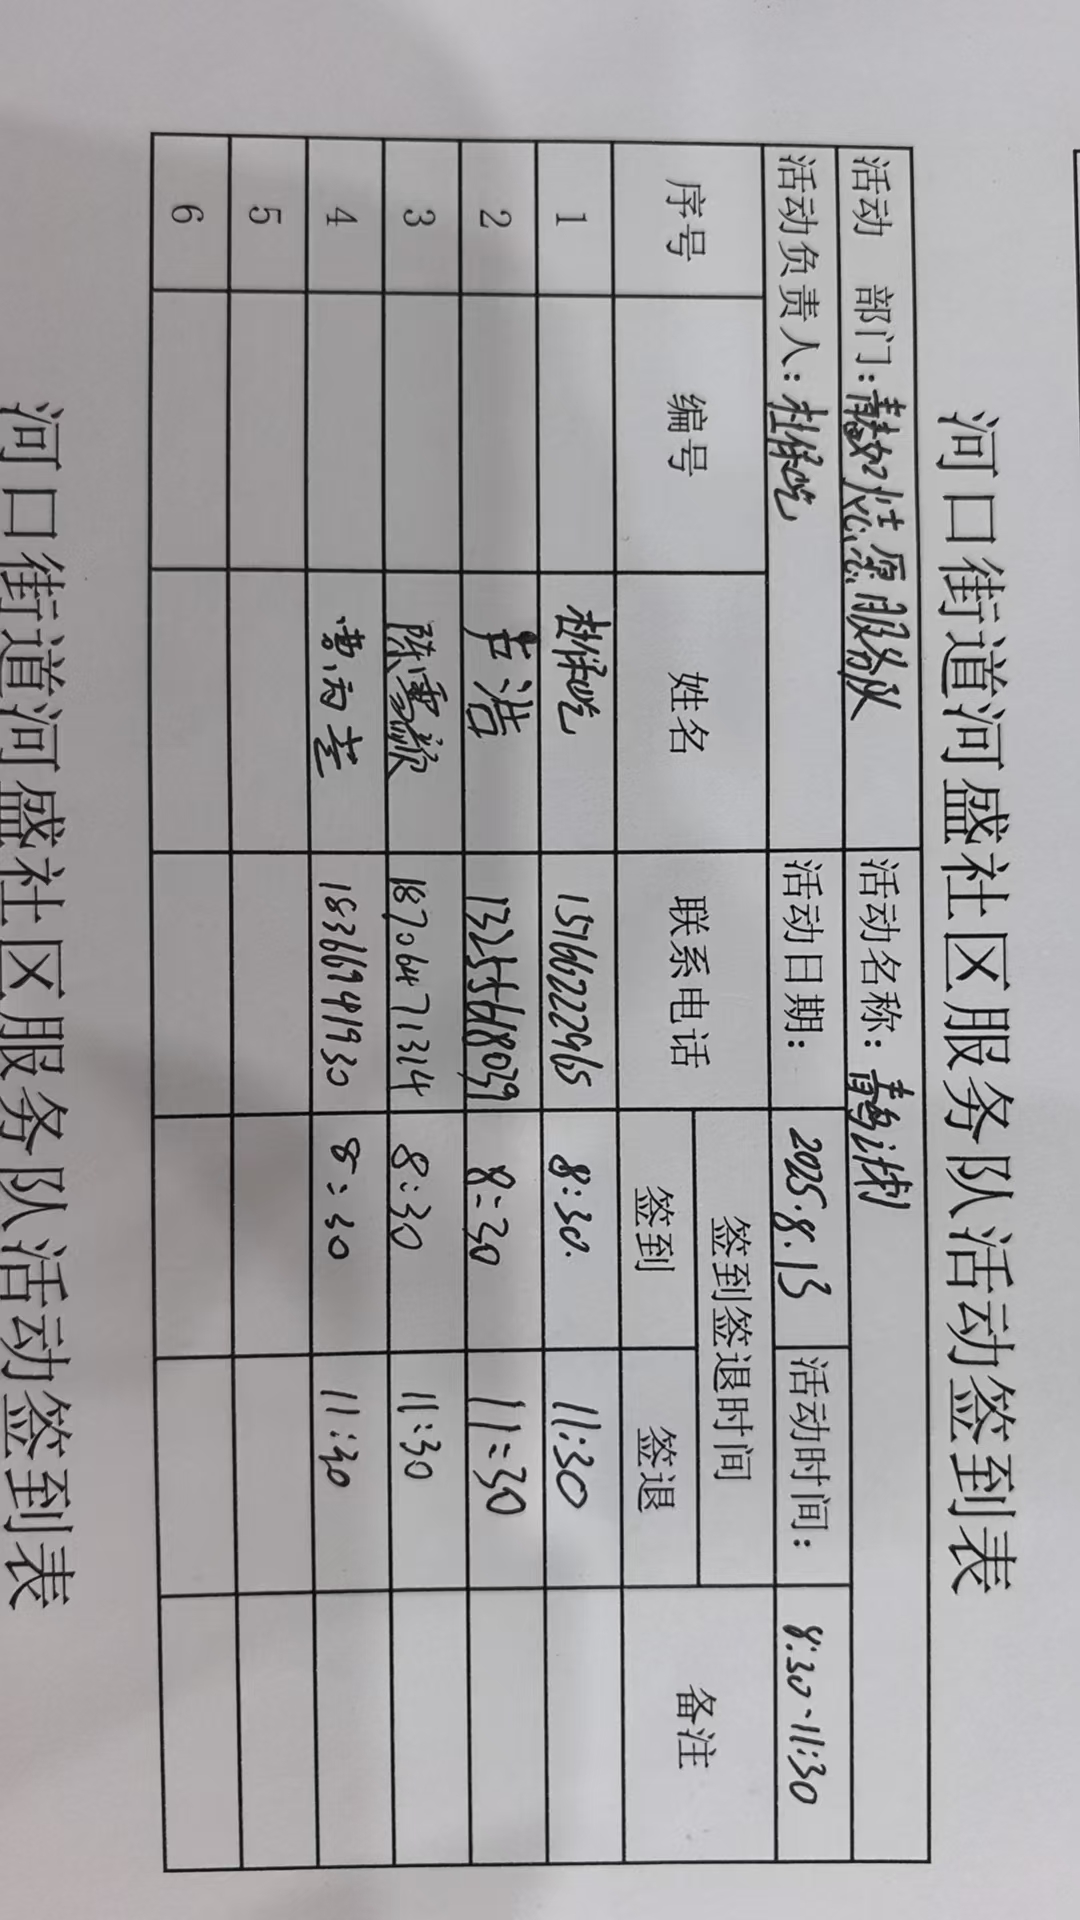 河口街道河盛社区服务队活动签到表
活动 部门: 志愿服务队 活动名称: 青鸟计划
活动负责人: 杜保屹 活动日期: 2025.8.13 活动时间: 8:30-11:30
序号 编号 姓名 联系电话 签到签退时间 备注
签到 签退
1 杜保屹 15766222965 8:30. 11:30
2 卢浩 8:30 11:30
3 陈雪颖 18706471324 8:30 11:30
4 18366941930 8:30 11:30
5
6
河口街道河盛社区服务队活动签到表